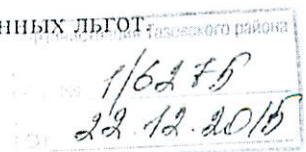 нных льгот.
Тазовского района
1/6275
22.12.2015